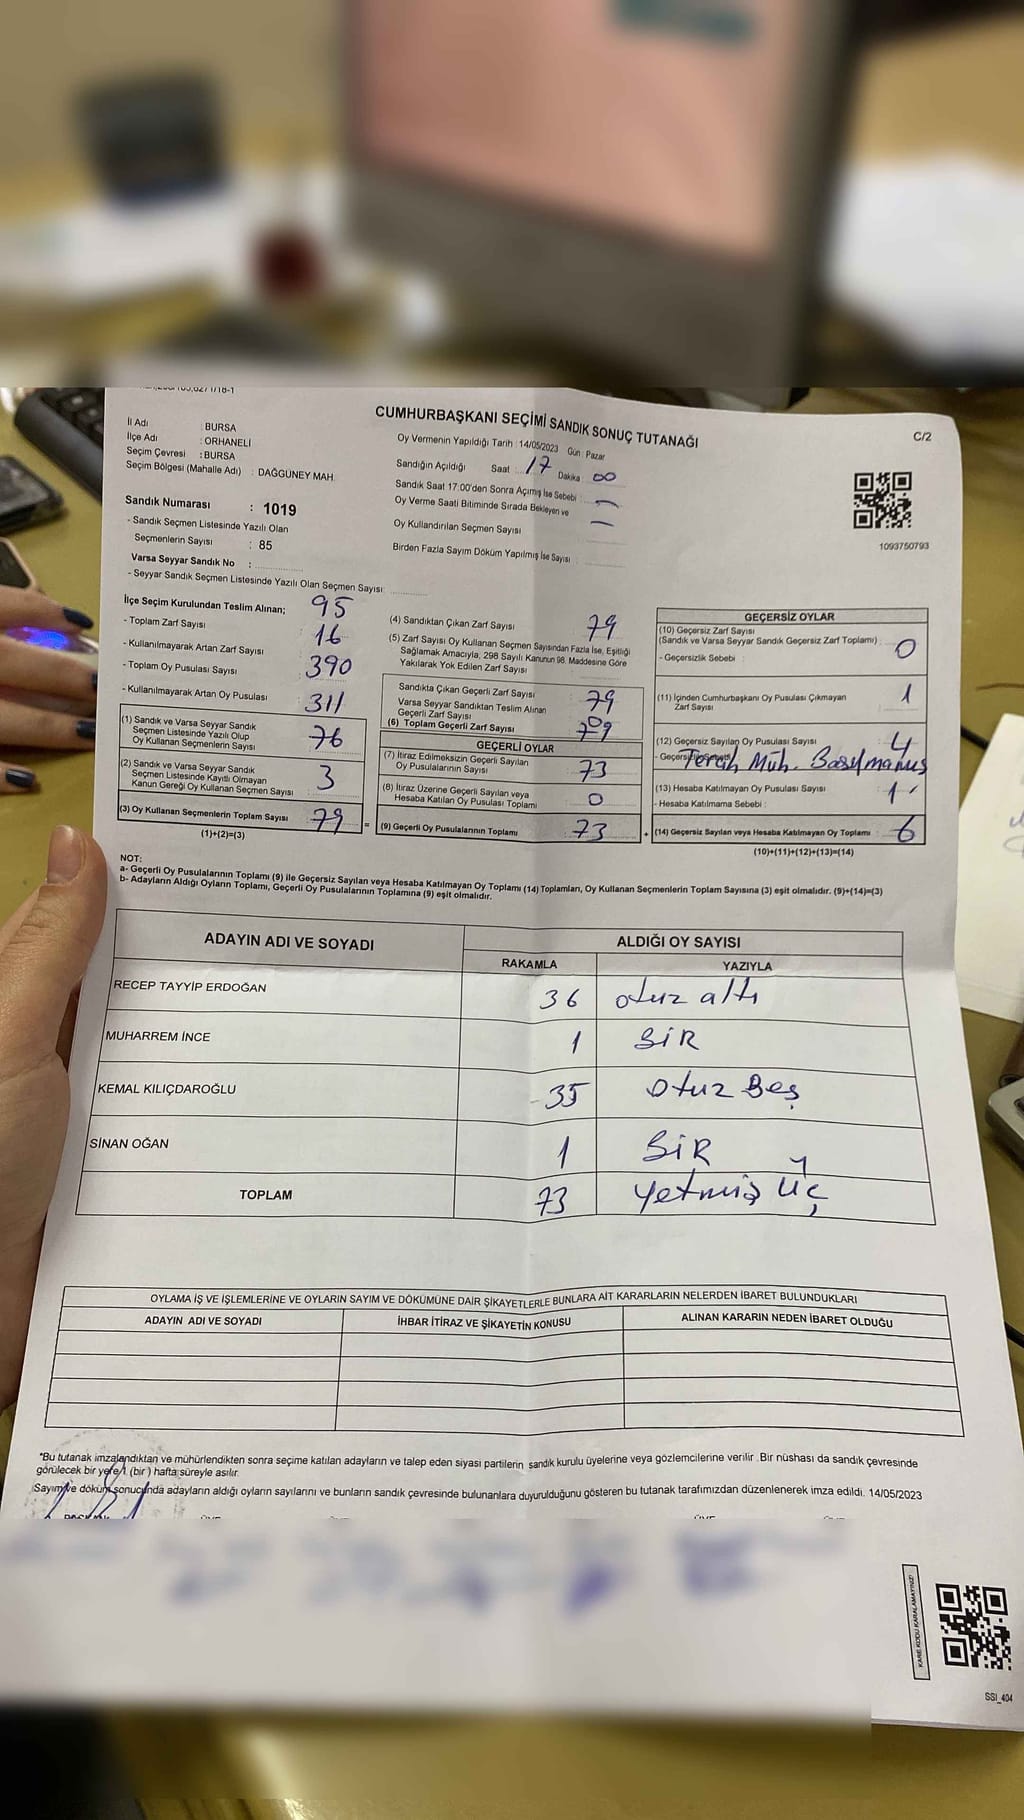 CUMHURBAŞKANI SEÇİMİ SANDIK SONUÇ TUTANAĞI
C/2
İl Adı : BURSA
İlçe Adı : ORHANELİ
Seçim Çevresi : BURSA
Seçim Bölgesi (Mahalle Adı) : DAĞGÜNEY MAH.
Sandık Numarası : 1019
- Sandık Seçmen Listesinde Yazılı Olan
Seçmenlerin Sayısı : 85
Varsa Seyyar Sandık No :
- Seyyar Sandık Seçmen Listesinde Yazılı Olan Seçmen Sayısı:
Oy Vermenin Yapıldığı Tarih : 14/05/2023 Gün : Pazar
Sandığın Açıldığı Saat : 17 Dakika : 00
Sandık Saat 17:00'den Sonra Açılmış İse Sebebi : —
Oy Verme Saati Bitiminde Sırada Bekleyen ve
Oy Kullandırılan Seçmen Sayısı —
Birden Fazla Sayım Döküm Yapılmış İse Sayısı :
1093750793
İlçe Seçim Kurulundan Teslim Alınan;
- Toplam Zarf Sayısı 95
- Kullanılmayarak Artan Zarf Sayısı 16
- Toplam Oy Pusulası Sayısı 390
- Kullanılmayarak Artan Oy Pusulası 311
(1) Sandık ve Varsa Seyyar Sandık
Seçmen Listesinde Yazılı Olup
Oy Kullanan Seçmenlerin Sayısı 76
(2) Sandık ve Varsa Seyyar Sandık
Seçmen Listesinde Kayıtlı Olmayan
Kanun Gereği Oy Kullanan Seçmen Sayısı 3
(3) Oy Kullanan Seçmenlerin Toplam Sayısı 79
(1)+(2)=(3)
(4) Sandıktan Çıkan Zarf Sayısı 79
(5) Zarf Sayısı Oy Kullanan Seçmen Sayısından Fazla İse, Eşitliği
Sağlamak Amacıyla, 298 Sayılı Kanunun 98. Maddesine Göre
Yakılarak Yok Edilen Zarf Sayısı
Sandıkta Çıkan Geçerli Zarf Sayısı 79
Varsa Seyyar Sandıktan Teslim Alınan
Geçerli Zarf Sayısı 0
(6) Toplam Geçerli Zarf Sayısı 79
GEÇERLİ OYLAR
(7) İtiraz Edilmeksizin Geçerli Sayılan
Oy Pusulalarının Sayısı 73
(8) İtiraz Üzerine Geçerli Sayılan veya
Hesaba Katılan Oy Pusulası Toplamı 0
(9) Geçerli Oy Pusulalarının Toplamı 73
GEÇERSİZ OYLAR
(10) Geçersiz Zarf Sayısı
(Sandık ve Varsa Seyyar Sandık Geçersiz Zarf Toplamı) : 0
- Geçersizlik Sebebi :
(11) İçinden Cumhurbaşkanı Oy Pusulası Çıkmayan
Zarf Sayısı 1
(12) Geçersiz Sayılan Oy Pusulası Sayısı : 4
Tercih Müh. Basılmamış
(13) Hesaba Katılmayan Oy Pusulası Sayısı : 1
- Hesaba Katılmama Sebebi :
(14) Geçersiz Sayılan veya Hesaba Katılmayan Oy Toplamı : 6
(10)+(11)+(12)+(13)=(14)
NOT:
a- Geçerli Oy Pusulalarının Toplamı (9) ile Geçersiz Sayılan veya Hesaba Katılmayan Oy Toplamı (14) Toplamları, Oy Kullanan Seçmenlerin Toplam Sayısına (3) eşit olmalıdır. (9)+(14)=(3)
b- Adayların Aldığı Oyların Toplamı, Geçerli Oy Pusulalarının Toplamına (9) eşit olmalıdır.
ADAYIN ADI VE SOYADI ALDIĞI OY SAYISI
RAKAMLA YAZIYLA
RECEP TAYYİP ERDOĞAN 36 otuz altı
MUHARREM İNCE 1 BİR
KEMAL KILIÇDAROĞLU 35 otuz Beş
SİNAN OĞAN 1 BİR
TOPLAM 73 yetmiş üç
OYLAMA İŞ VE İŞLEMLERİNE VE OYLARIN SAYIM VE DÖKÜMÜNE DAİR ŞİKAYETLERLE BUNLARA AİT KARARLARIN NELERDEN İBARET BULUNDUKLARI
ADAYIN ADI VE SOYADI İHBAR İTİRAZ VE ŞİKAYETİN KONUSU ALINAN KARARIN NEDEN İBARET OLDUĞU
*Bu tutanak imzalandıktan ve mühürlendikten sonra seçime katılan adayların ve talep eden siyasi partilerin sandık kurulu üyelerine veya gözlemcilerine verilir. Bir nüshası da sandık çevresinde
görülecek bir yere 1 (bir) hafta süreyle asılır.
Sayım ve döküm sonucunda adayların aldığı oyların sayılarını ve bunların sandık çevresinde bulunanlara duyurulduğunu gösteren bu tutanak tarafımızdan düzenlenerek imza edildi. 14/05/2023
KARE KODU KARALAMAYINIZ!
SSI_404